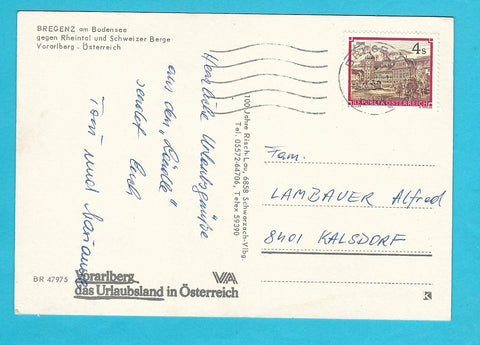 BREGENZ am Bodensee
gegen Rheintal und Schweizer Berge
Vorarlberg - Österreich
Herzliche Urlaubsgrüße
aus den "Ländle"
sendet Euch
Toni und Marianne
100 Jahre Risch-Lau, 6858 Schwarzach-Vlbg.
Tel. 05572-64706, Telex 59390
4 S
REPUBLIK ÖSTERREICH
Fam.
LAMBAUER Alfred
8401 KALSDORF
BR 47975
Vorarlberg
das Urlaubsland in Österreich
VA
K